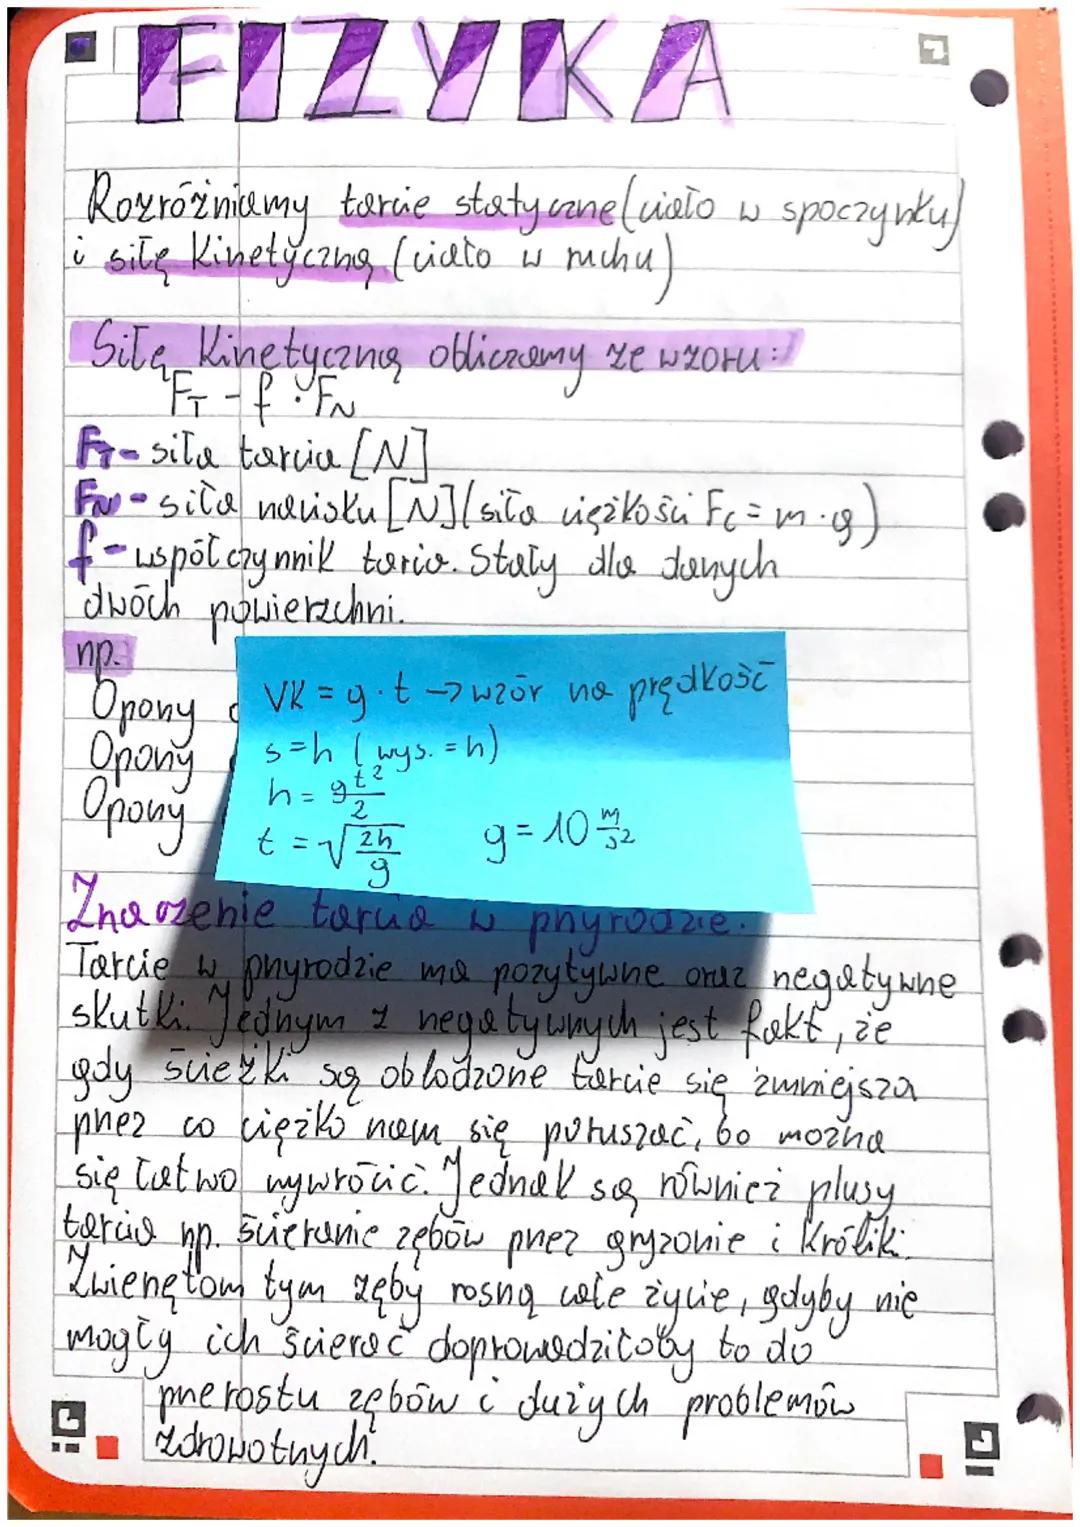 FIZYKA
Rozróżniamy tarcie statyczne (ciało w spoczynku)
i siłę Kinetyczną (ciało w ruchu)
Siłę Kinetyczną obliczamy ze wzoru:
FT - f · FN
FT - siła tarcia [N]
FN - siła nacisku [N] (siła ciężkości Fc = m · g)
f - współczynnik tarcia. Stały dla danych
dwóch powierzchni.
np.
Opony
Opony
Opony
VK = g · t -> wzór na prędkość
s = h (wys. = h)
h = gt²/2
t = √2h/g g = 10 m/s²
Znaczenie tarcia w przyrodzie.
Tarcie w przyrodzie ma pozytywne oraz negatywne
skutki. Jednym z negatywnych jest fakt, że
gdy ścieżki są oblodzone tarcie się zmniejsza
przez co ciężko nam się poruszać, bo można
się łatwo wywrócić. Jednak są również plusy
tarcia np. ścieranie zębów przez gryzonie i Króliki.
Zwierzętom tym zęby rosną całe życie, gdyby nie
mogły ich ścierać doprowadziłoby to do
przerostu zębów i dużych problemów
zdrowotnych.